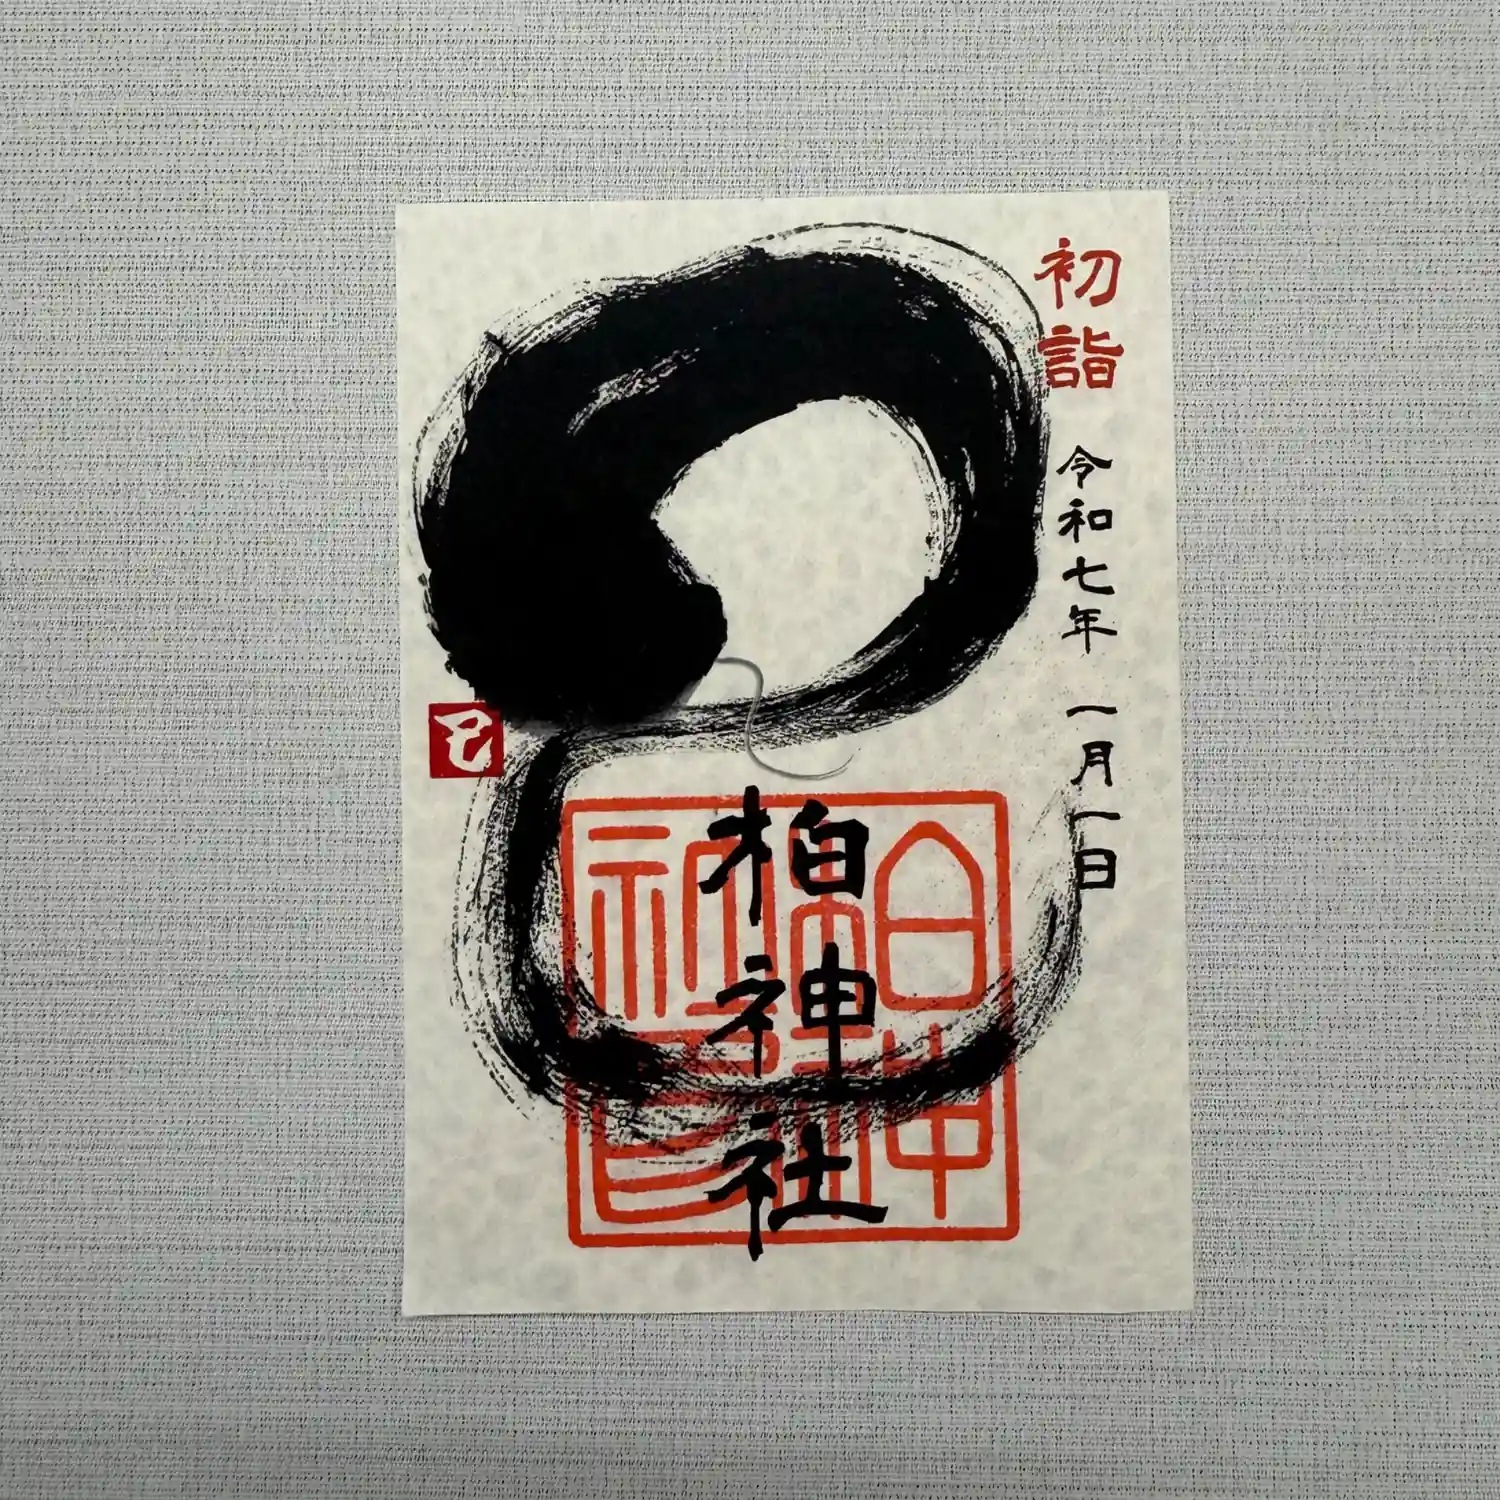 初詣
令和七年 一月一日
柏神社
巳